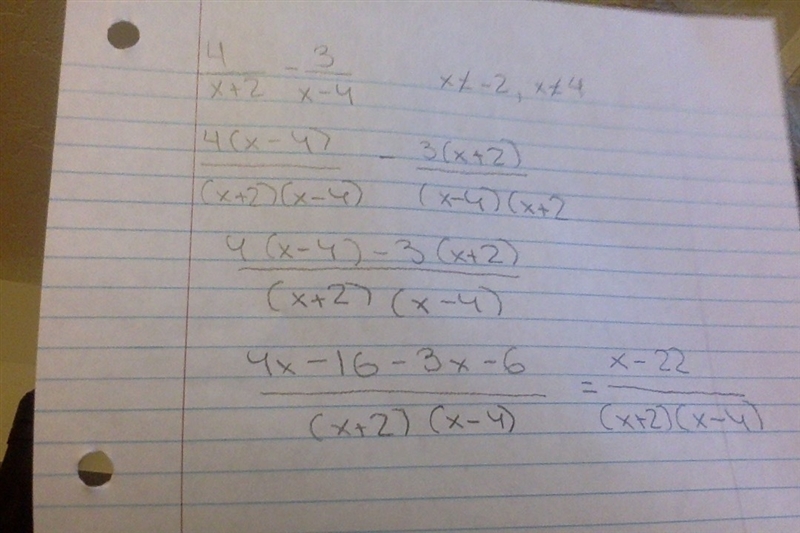 4/(x+2) - 3/(x-4) x≠-2, x≠4
4(x-4)/(x+2)(x-4) - 3(x+2)/(x-4)(x+2
4(x-4)-3(x+2)/(x+2)(x-4)
4x-16-3x-6/(x+2)(x-4) = x-22/(x+2)(x-4)